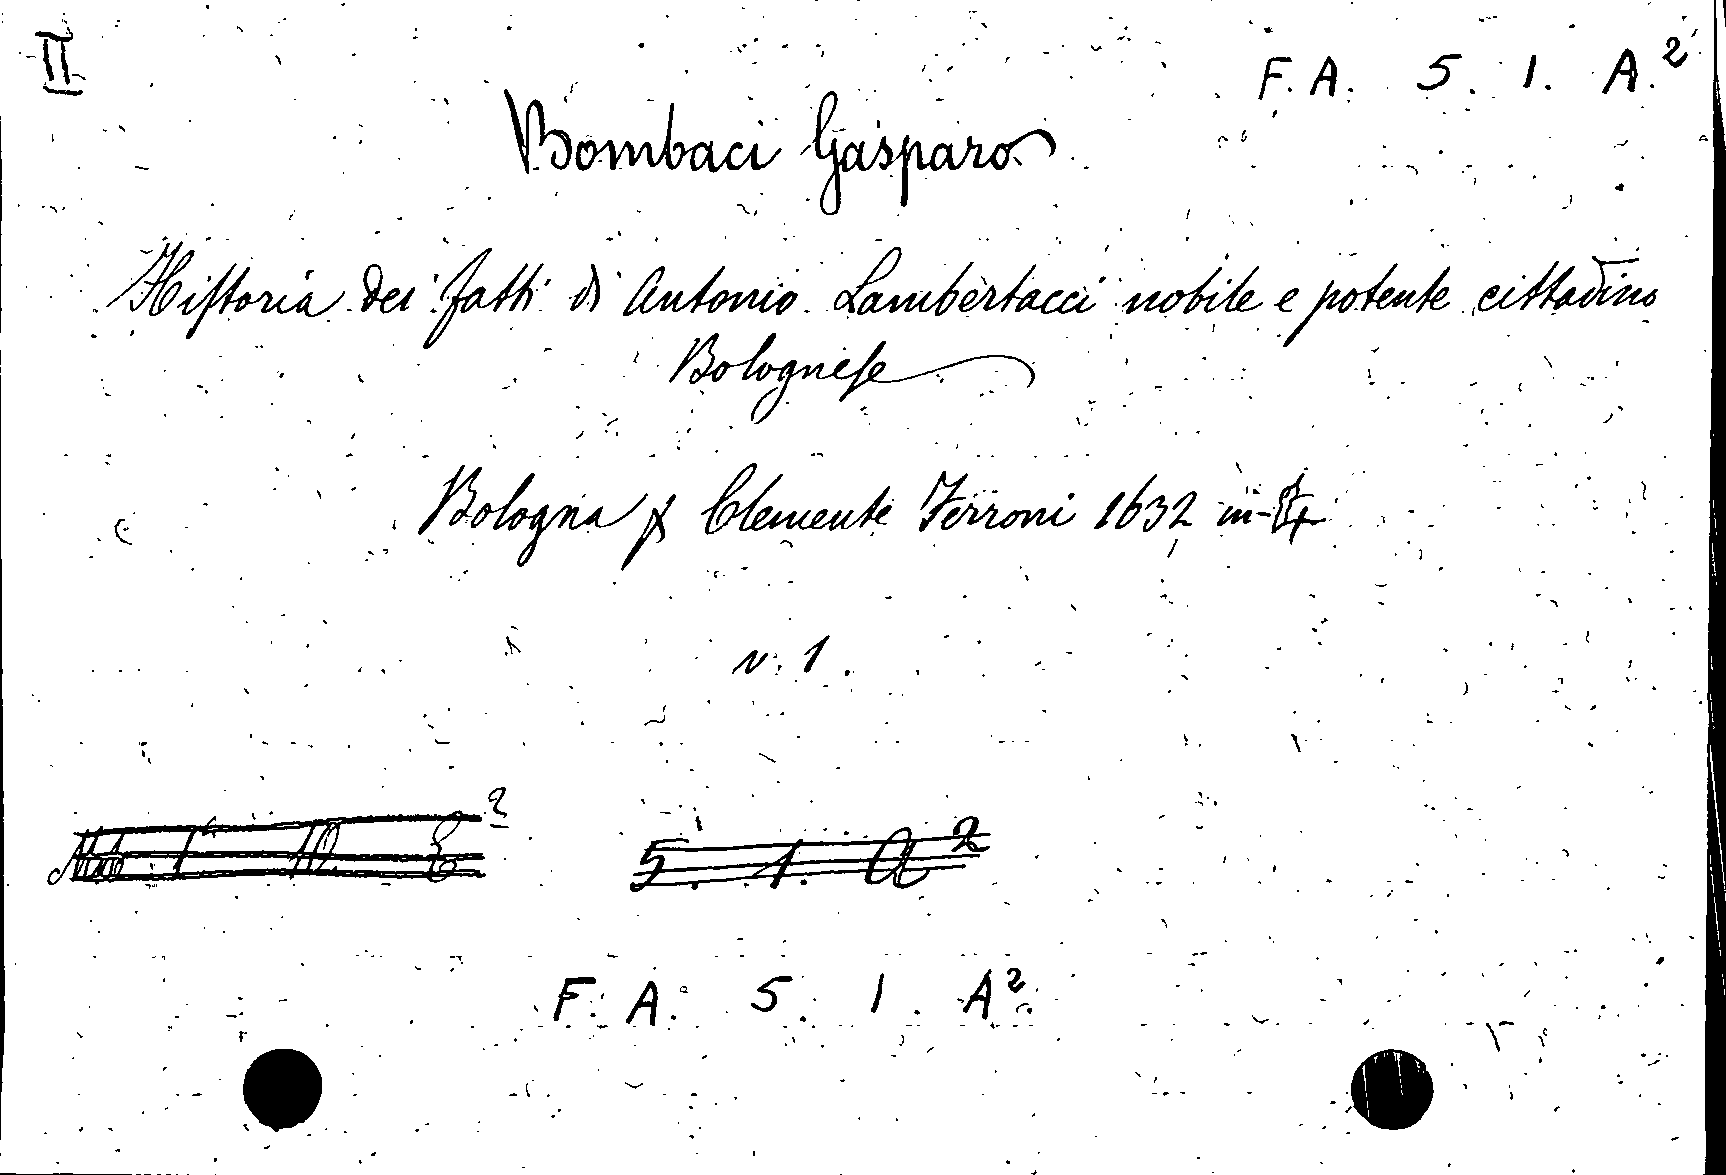 II
F. A. 5. 1. A.²
Bombaci Gasparo
Historia dei fatti di Antonio Lambertacci nobile e potente cittadino
Bolognese
Bologna p Clemente Ferroni 1632 in-4
v. 1.
5. 1. A²
F. A. 5. 1. A²